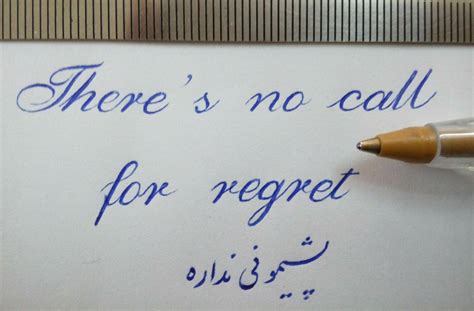 There's no call
for regret
پشیمونی نداره